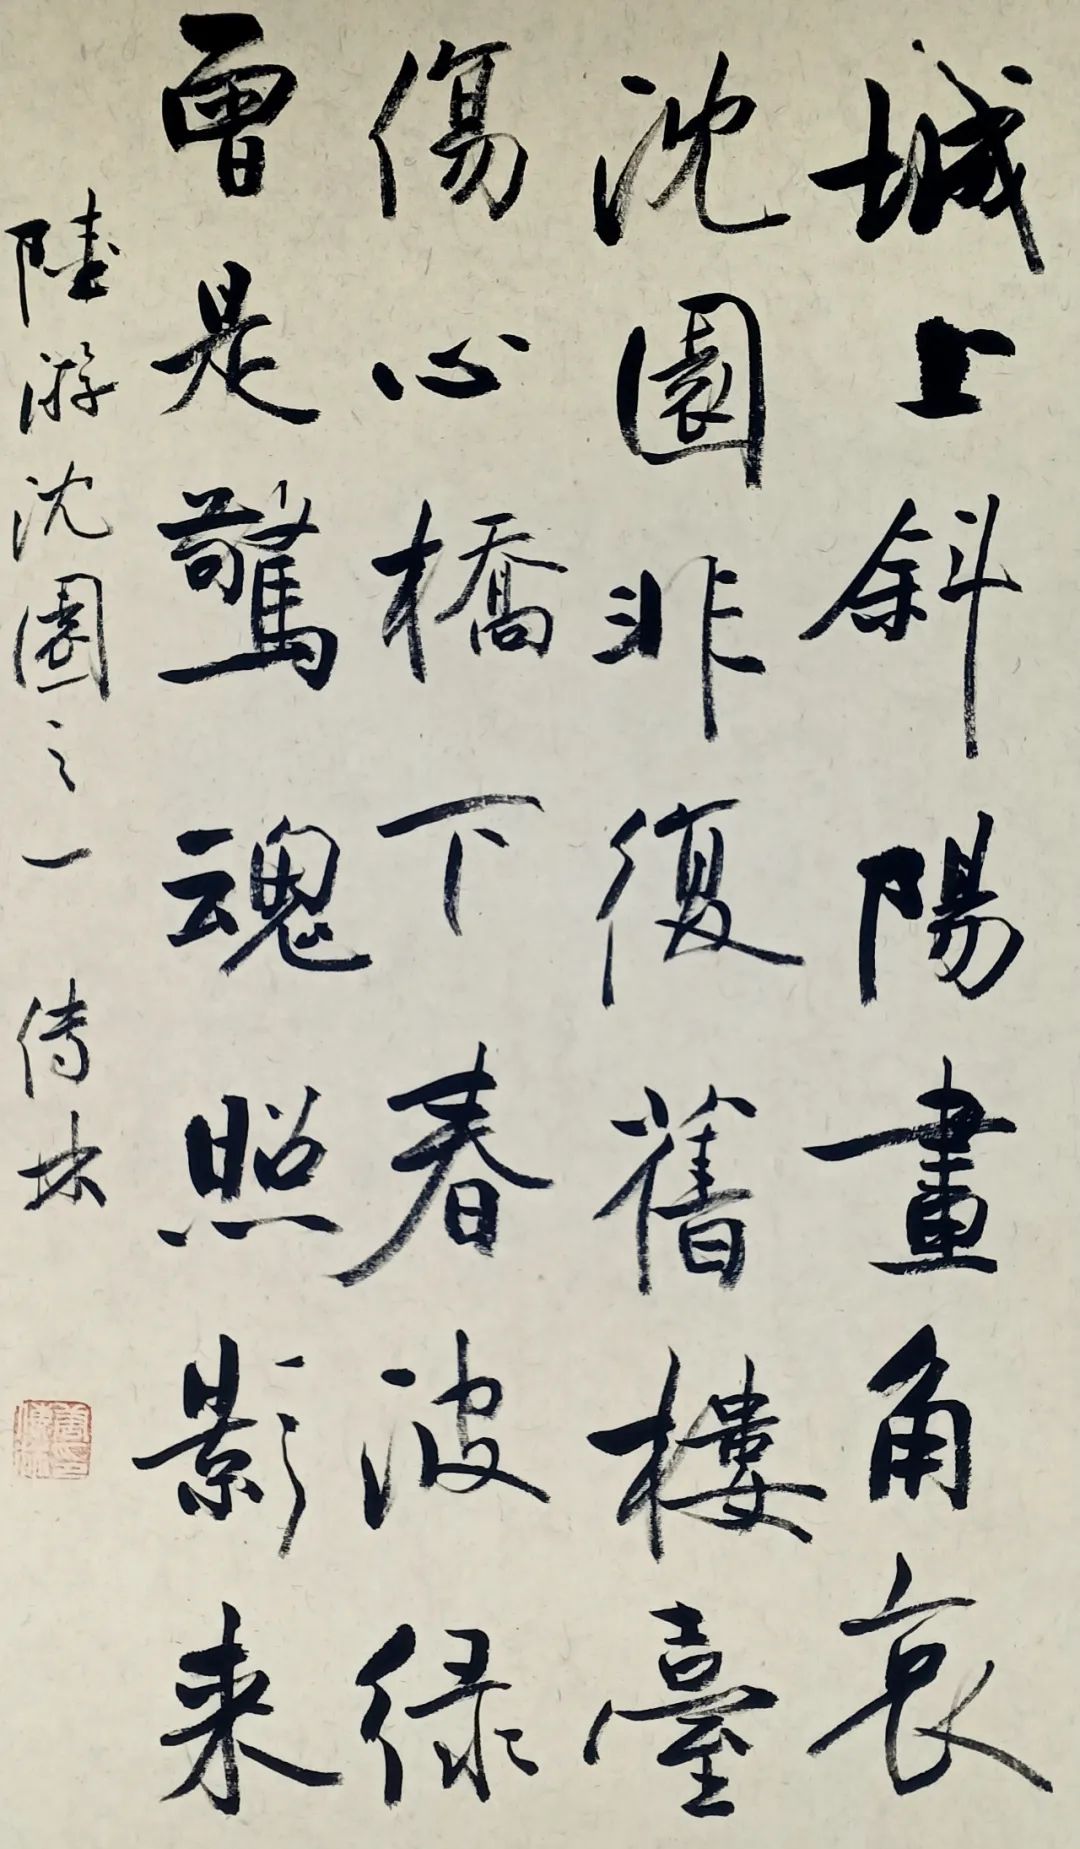 城上斜陽畫角哀
沈園非復舊樓臺
傷心橋下春波绿
曾是驚魂照影来
陸游沈園之一 傳林